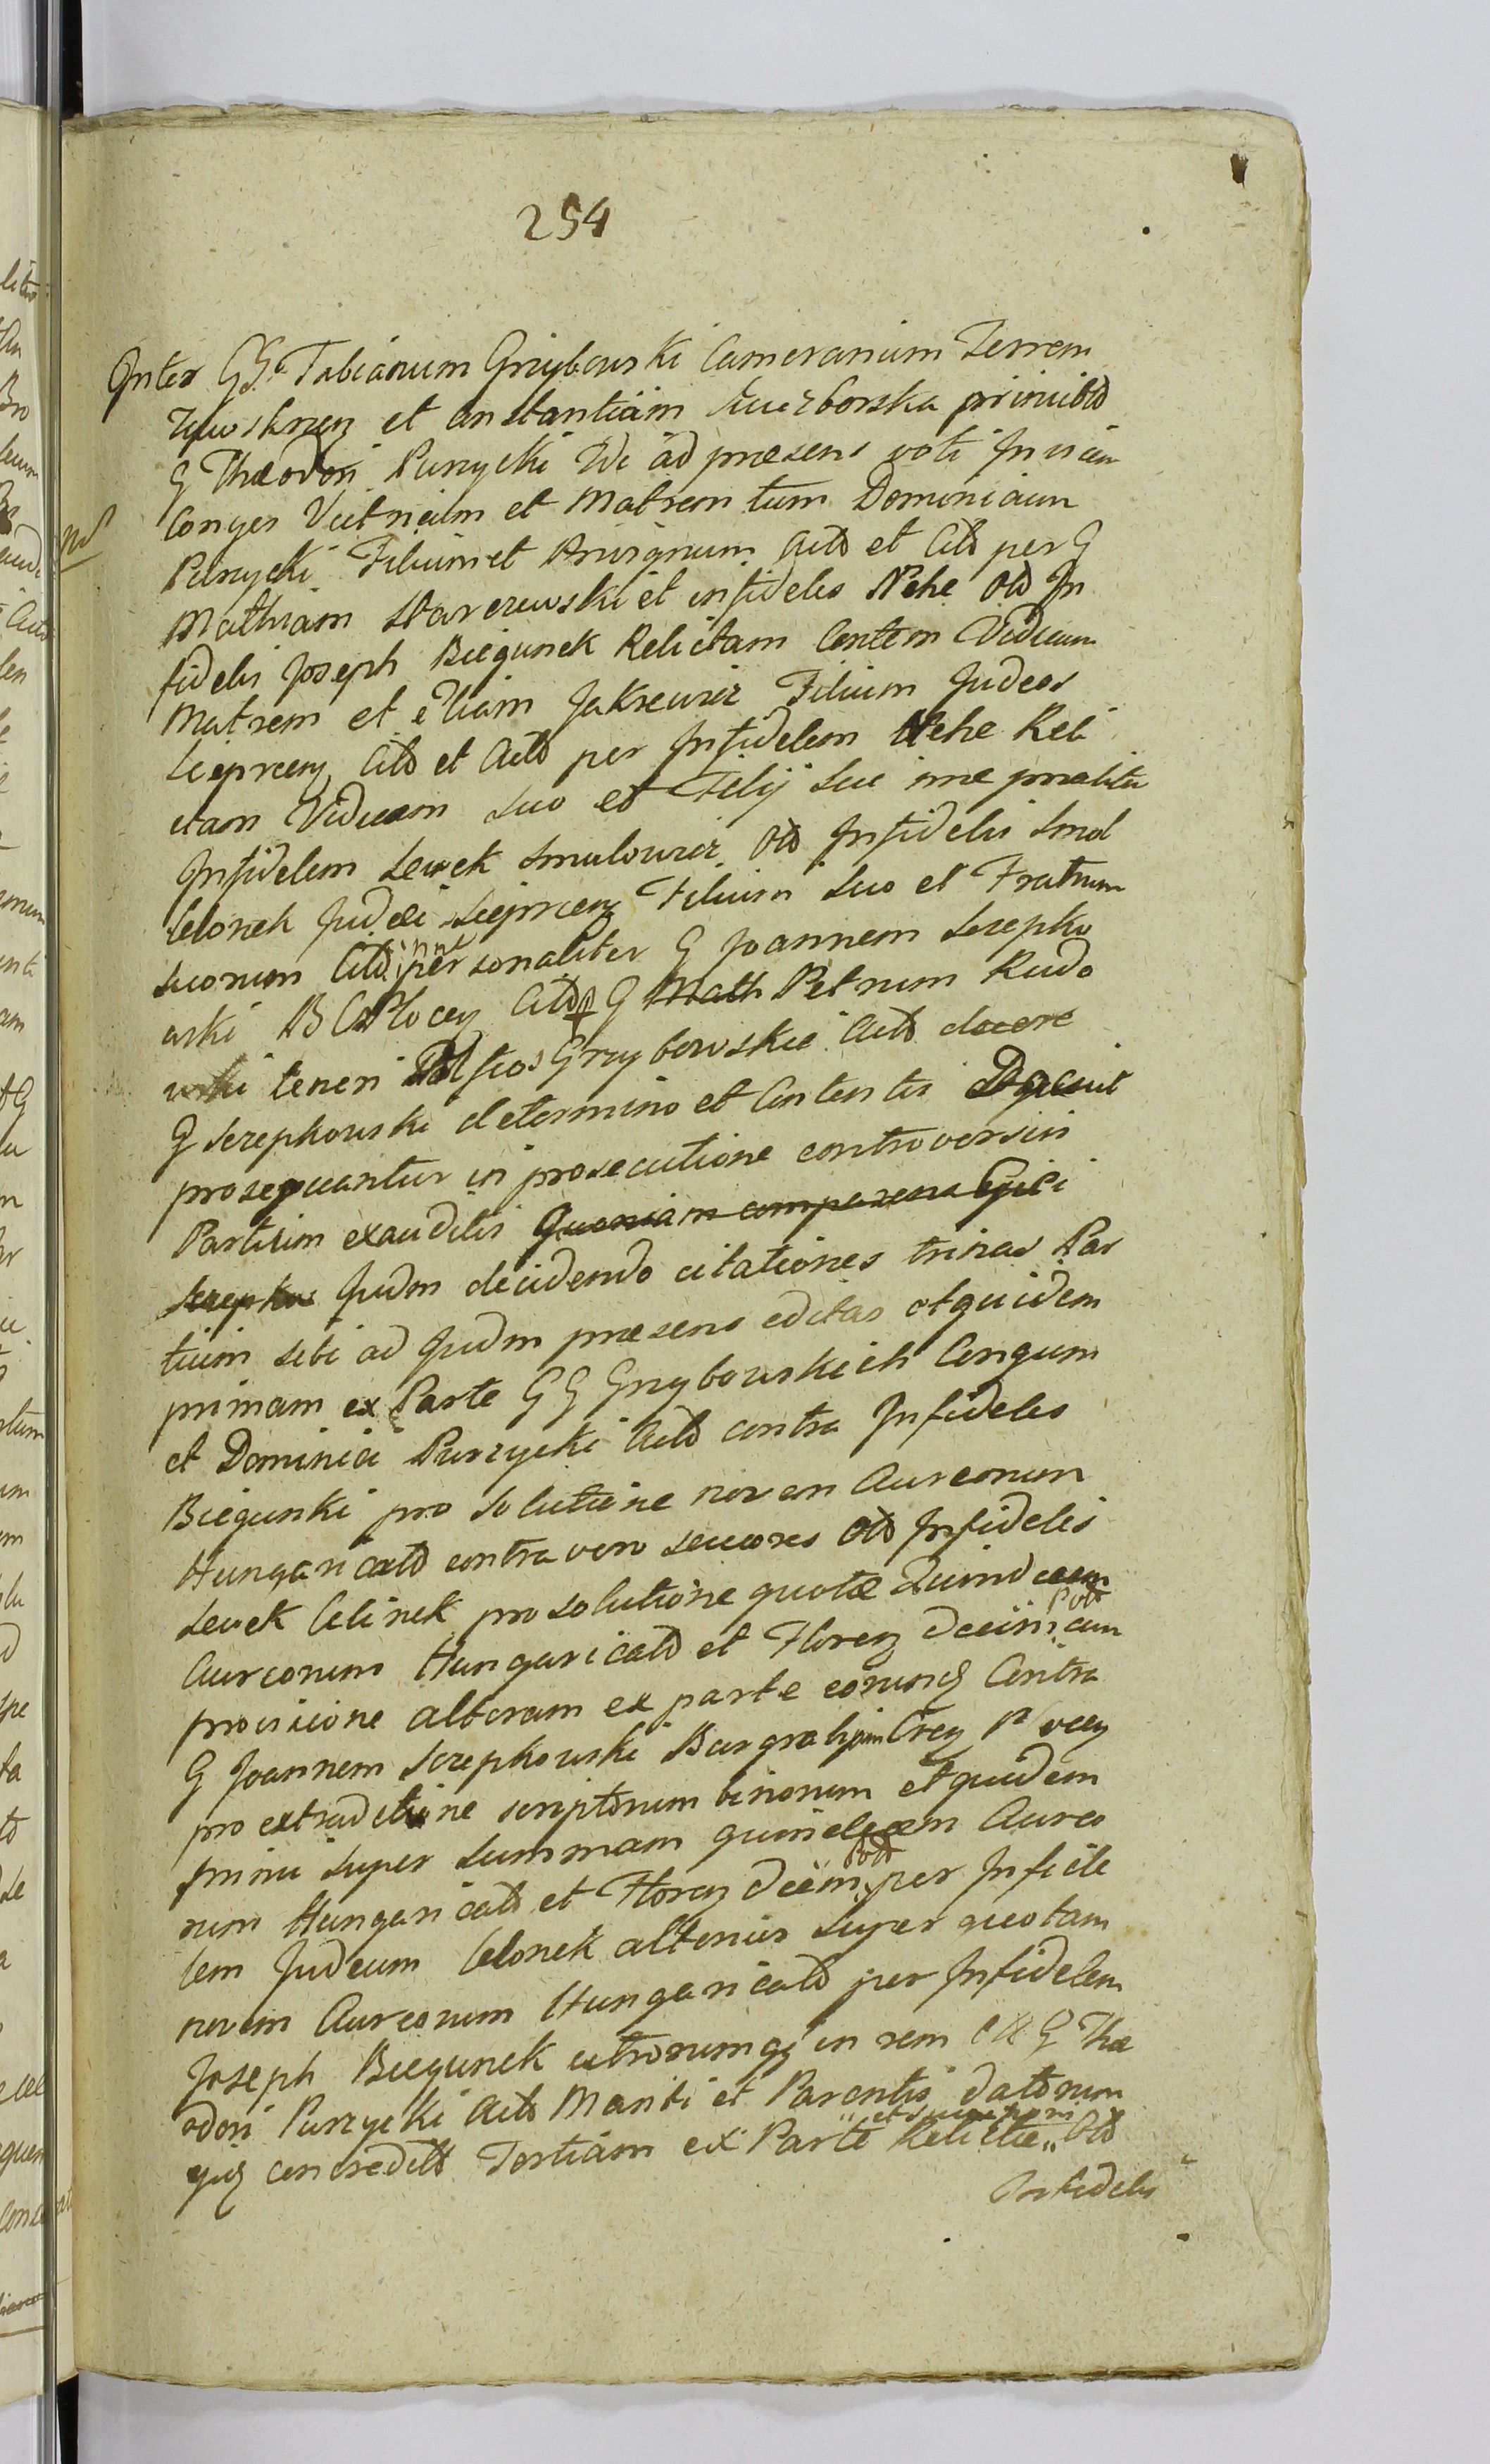 254
Inter GG. Fabianum Grzybowski Camerarium Terrem
Zywsknen et Constantiam Kuczborska primi Otd
G Theodori Purzycki Ad ad praesens voti Inviem
Conges Vitricum et Matrem tum Dominicum
Purzycki Filium et Privignum Actd et Citd per G
Mathiam Starczewski et infideles Nehe Otd In
fidelis Joseph Biegunek Relictam Contem Viduam
Matrem et Eliam Jakiewicz Filium Judeos
Sieprcen, Citd et Actd per Infidelem Nehe Reli
ctam Viduam Suo et Filij Sui nne prnaliter
Infidelem Lewek Smulowicz Otd Infidelis Smol
Celonek Judei Sieprcen Filium Suo et Fratrum
Suorum Citd nne personaliter G Joannem Szczepko
wski B C Plocen Citd p G Math Petrum Rudo
wski teneri Gnfios Grzybowskie Actd docere
G Szczepkowski de termino et Contentis Docuit
prosequantur in prosecutione controversiis
Partium exauditis Quoniam comparens Gsici
Szczepkow Judm decidendo citationes trinas Par
tium sibi ad Judm praesens editas et quidem
primam ex Parte GG Grzybowskich Congum
et Dominici Purzycki Actd contra Infideles
Biegunki pro Solutione novem Aureorum
Hungaricatd contra vero Succores Otd Infidelis
Lewek Celinek pro solutione quotae Quindecem
Aureorum Hungaricatd et Floren decim Pold cum
provisione alteram ex parte eorundq Contra
G Joannem Szczepkowski Burgrabium Cren Plocen
pro extraditione scriptorum binorum et quidem
primi super Summam quindecem Aureo
rum Hungaricatd et Floren decim Pold per Infide
lem Judeum Celonek alterius Super quotam
novem Aureorum Hungaricatd per Infidelem
Joseph Biegunek utrorumq in rem olim G The
odori Purzycki Actd Mariti et Parentis datorum
ejusq concredittd Tertiam ex Parte Relictae et Succesorum Otd
Infidelis